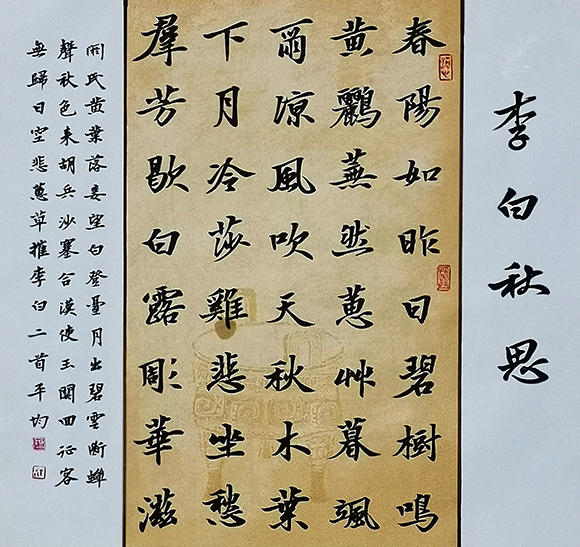 李白秋思
春陽如昨日碧樹鳴
黄鸝蕪然蕙艸暮颯
爾凉風吹天秋木葉
下月冷莎雞悲坐愁
羣芳歇白露彫華滋
閼氏黄葉落妾望白登臺月出碧雲断蟬
聲秋色来胡兵沙塞合漢使玉關回征客
無歸日空悲蕙草摧李白二首平均